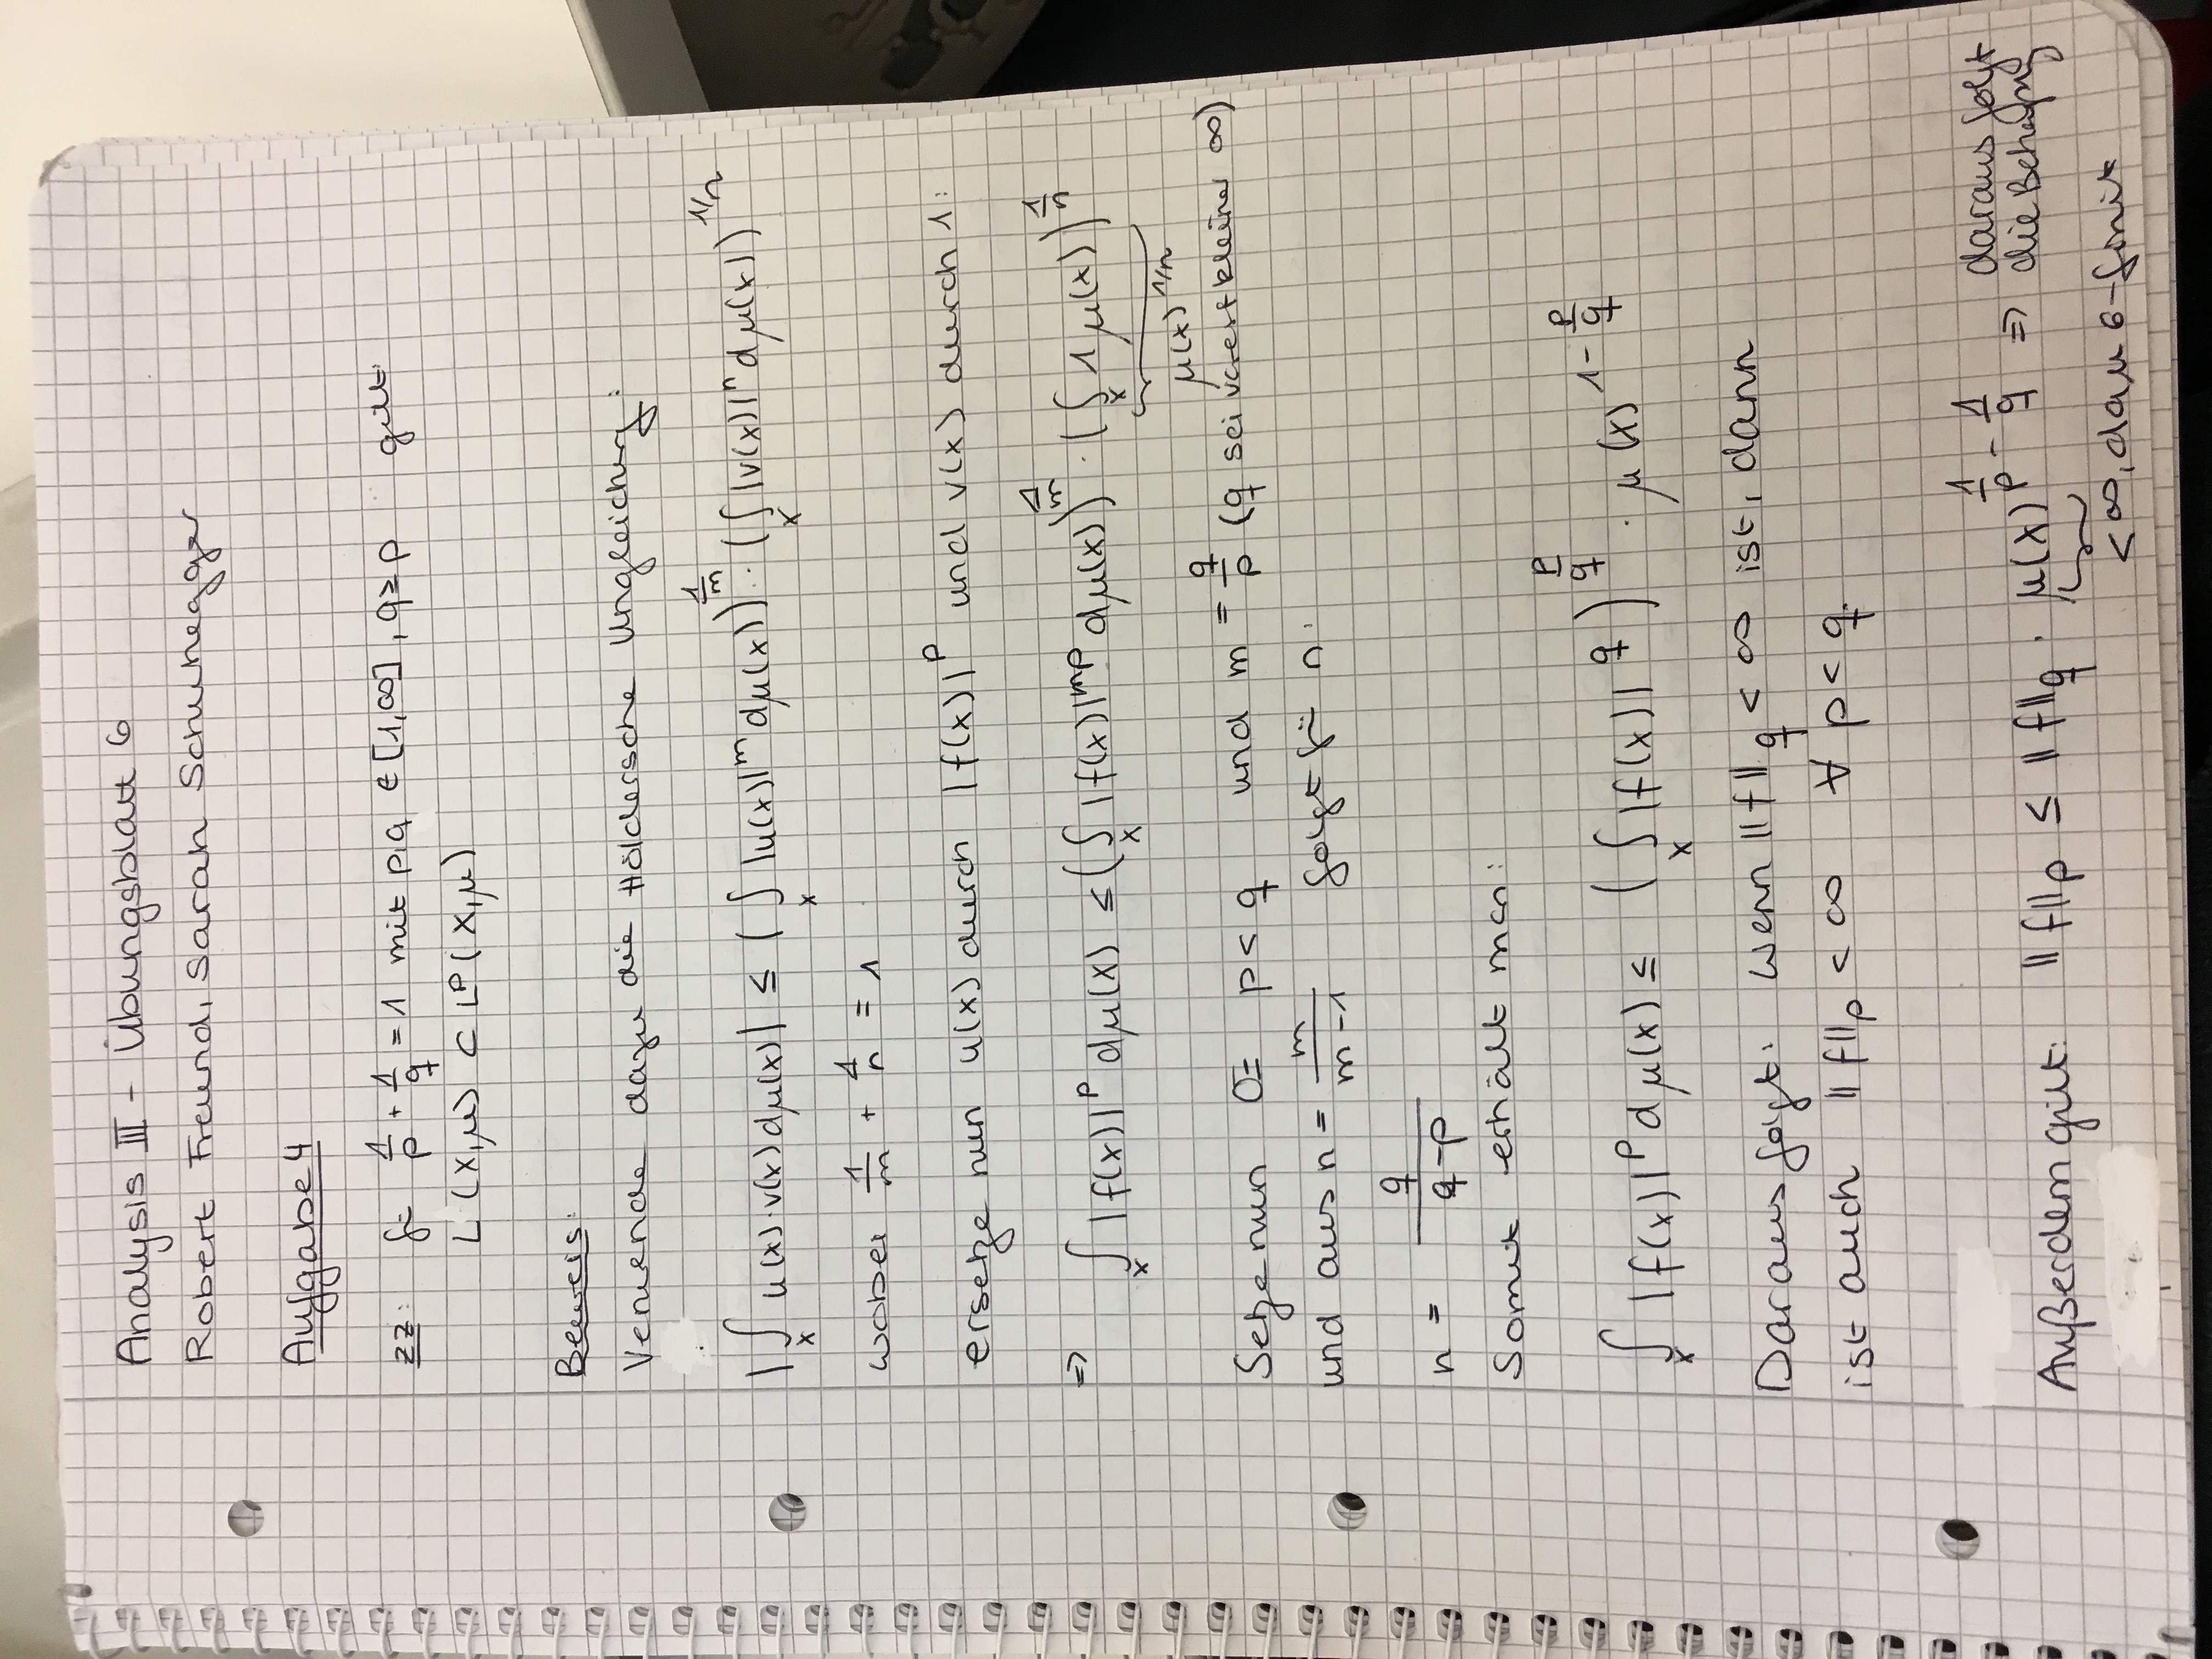 Analysis III - Übungsblatt 6
Robert Freund, Sarah Schuhegger
Aufgabe 4
zz: für 1/p + 1/q = 1 mit p,q ∈ [1,∞], q ≥ p gilt:
L (X,μ) ⊂ L^p (X,μ)
Beweis:
Verwende dazu die Höldersche Ungleichung:
|∫_X u(x)·v(x) dμ(x)| ≤ (∫_X |u(x)|^m dμ(x))^{1/m} · (∫_X |v(x)|^n dμ(x))^{1/n}
wobei 1/m + 1/n = 1
ersetze nun u(x) durch |f(x)|^p und v(x) durch 1:
⇒ ∫_X |f(x)|^p dμ(x) ≤ (∫_X |f(x)|^{mp} dμ(x))^{1/m} · (∫_X 1 μ(x))^{1/n}
μ(x)^{1/n}
Setze nun p < q und m = q/p (q sei vorerst kleiner ∞)
und aus n = m/(m-1) folgt für n:
n = q/(q-p)
Somit erhält man:
∫_X |f(x)|^p dμ(x) ≤ (∫_X |f(x)|^q)^{p/q} · μ(x)^{1-p/q}
Daraus folgt: Wenn ||f||_q < ∞ ist, dann
ist auch ||f||_p < ∞ ∀ p < q.
Außerdem gilt: ||f||_p ≤ ||f||_q · μ(x)^{1/p - 1/q} ⇒ daraus folgt
die Behauptung
< ∞, da μ σ-finit